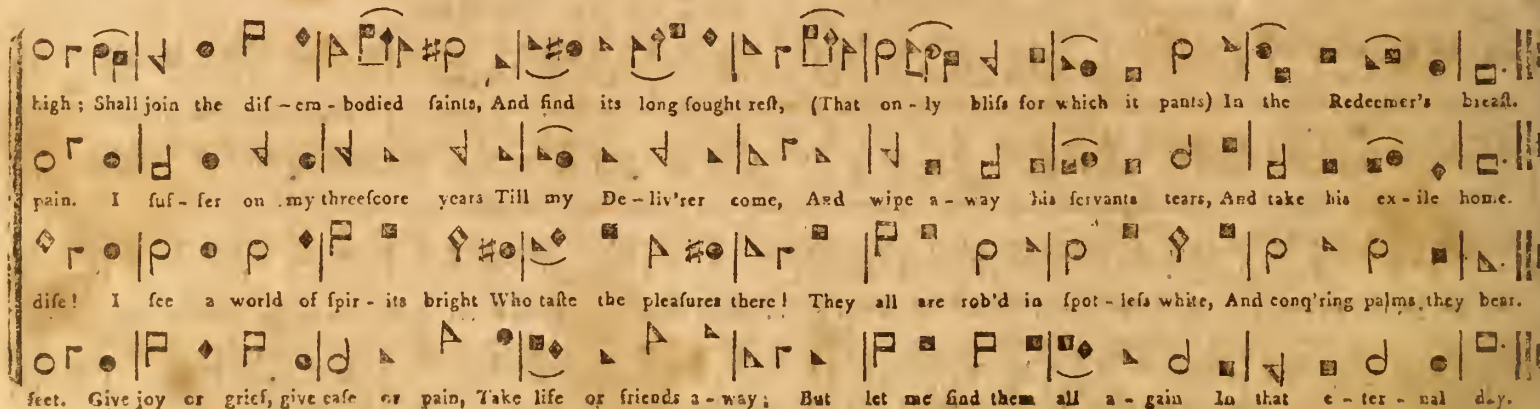 high ; Shall join the diſ-em-bodied ſaints, And find its long ſought reſt, (That on-ly bliſs for which it pants) In the Redeemer's breaſt.
pain. I ſuf-fer on my threeſcore years Till my De-liv'rer come, And wipe a-way his ſervants tears, And take his ex-ile home.
diſe! I ſee a world of ſpir-its bright Who taſte the pleaſures there! They all are rob'd in ſpot-leſs white, And conq'ring palms they bear.
feet. Give joy or grief, give eaſe or pain, Take life or friends a-way; But let me find them all a-gain In that e-ter-nal day.